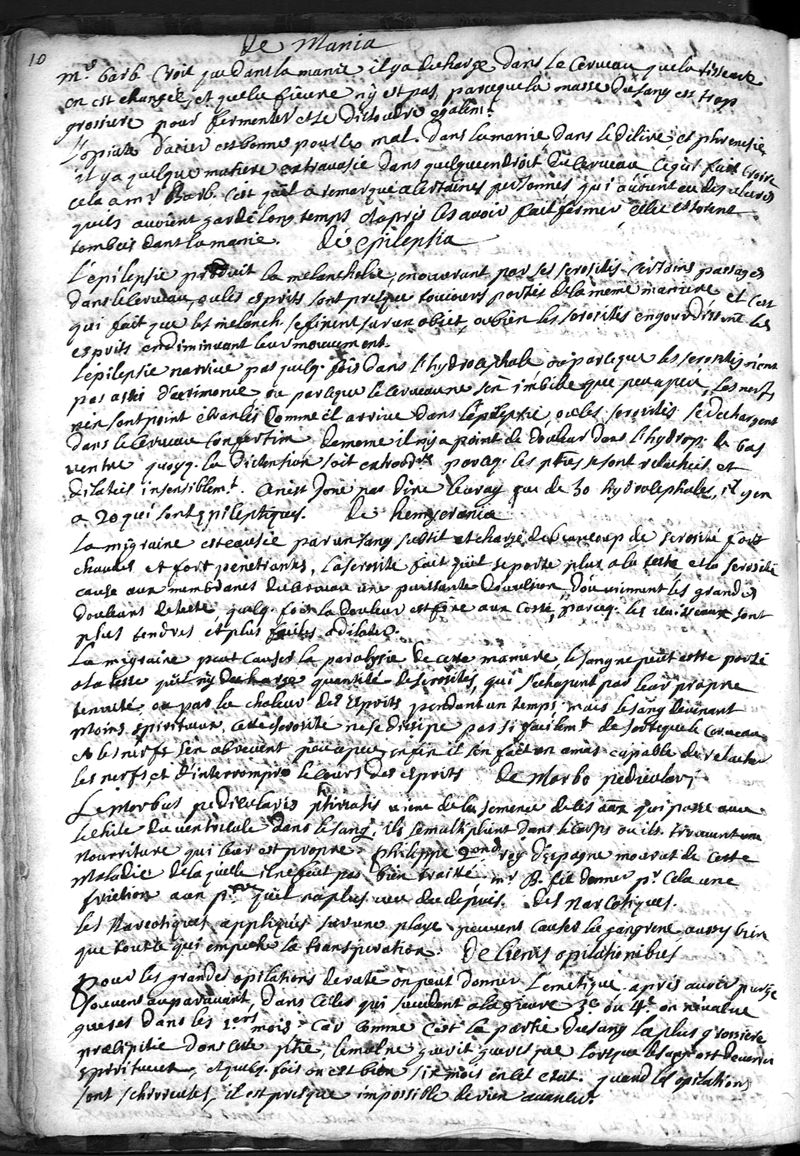 10
de Mania
mr. barb. Croit que dans la manie il y a decharge dans le Cerveau que la tisseure
en est changée, et que la fievre n'y est pas parceque la masse du sang est trop
grossiere pour fermenter et se dissoudre egallemt.
L'opiate d'acier est bonne pour le mal. dans la manie dans le delire et phrenesie
il y a quelque matiere extravasée dans quelque endroit du cerveau. Ce qui fait croire
cela a mr Barb. c'est qu'il a remarqué a certaines personnes qui avoient eu des ulceres
quils avoient gardé long temps et apres les avoir fait fermer elles estoient
tombées dans la manie. de epilepsia
L'epilepsie produit la melancholie, en ouvrant par ses serosités certains passages
dans le Cerveau, ou les esprits sont presque toujours portés de la meme maniere et c'est
qui fait que les melanch. se fixent sur un objet, ou bien les serosités engourdissent les
esprits en diminuant leur mouvement.
L'epilepsie narrive pas quelq. fois dans l'hydrocephale ou parceque les serosités n'ont
pas assés d'acrimonie ou parceque le Cerveau ne s'en imbibe que peu a peu, les nerfs
n'en sont point ébranlés comme il arrive dans l'epilepsie, ou les serosités se dechargent
dans le Cerveau confertim. de meme il n'y a point de douleur dans l'hydrop. de bas
ventre quoyq. la distension soit extraordre parceq. les ptres se sont relachées et
dilatées insensiblemt. Ce n'est donc pas dire le vray que de 30 hydrocephales, il y en
a 20 qui sont epileptiques. de hemycrania
La migraine est causée par un sang subtil et chargé de beaucoup de serosité fort
chaudes et fort penetrantes, la serosité fait qu'il se porte plus a la teste et la serosité
cause aux membranes du Cerveau une puissante divulsion, d'ou viennent les grandes
douleurs de teste quelq. fois la douleur est fixe aux costé, parceq. les vaisseaux sont
plus tendres et plus faciles a dilater.
La migraine peut causer la paralysie de cette maniere le sang ne peut estre porté
a la teste qu'il n'y decharge quantité de serosités, qui s'echapent par leur propre
tenuité ou par la chaleur des Esprits pendant un temps. mais le sang devenant
moins spiritueux, cette serosité ne se dissipe pas si facilemt. de sorte que le cerveau
et les nerfs s'en abreuvent peu a peu, enfin il s'en fait un amas capable de relacher
les nerfs et d'interrompre le cours des esprits de Morbo pediculari
Le morbus pedicularis phtiriasis vient de la semence de ces aaux qui passe avec
le chile du ventricule dans le sang, ils se multiplient dans le corps ou ils trouvent une
nourriture qui leur est propre. Philippe 2cond roy d'Espagne mourut de cette
maladie de laquelle il ne fut pas bien traité. mr B. fit donner pr. cela une
friction a un pre qu'il n'a plus veu du depuis. des Narcotiques.
les Narcotiques appliqués sur une playe peuvent causer la gangrene aussy bien
que tout ce qui empeche la transpiration. de lienis opilationibus
Pour les grandes opilations de rate on peut donner l'emetique apres avoir purgé
souvent auparavant, dans celles qui succedent a la fievre 3e. ou 4e. on n'evalue
gueres dans les 1.ers mois. car comme c'est la partie du sang la plus grossiere
præcipitée dans cette ptie, le mal ne guerit gueres que lorsque le sang est devenu
spiritueux, et quelq. fois on est bien six mois en cet etat. quand les opilations
sont schirreuses, il est presque impossible de rien avancer.